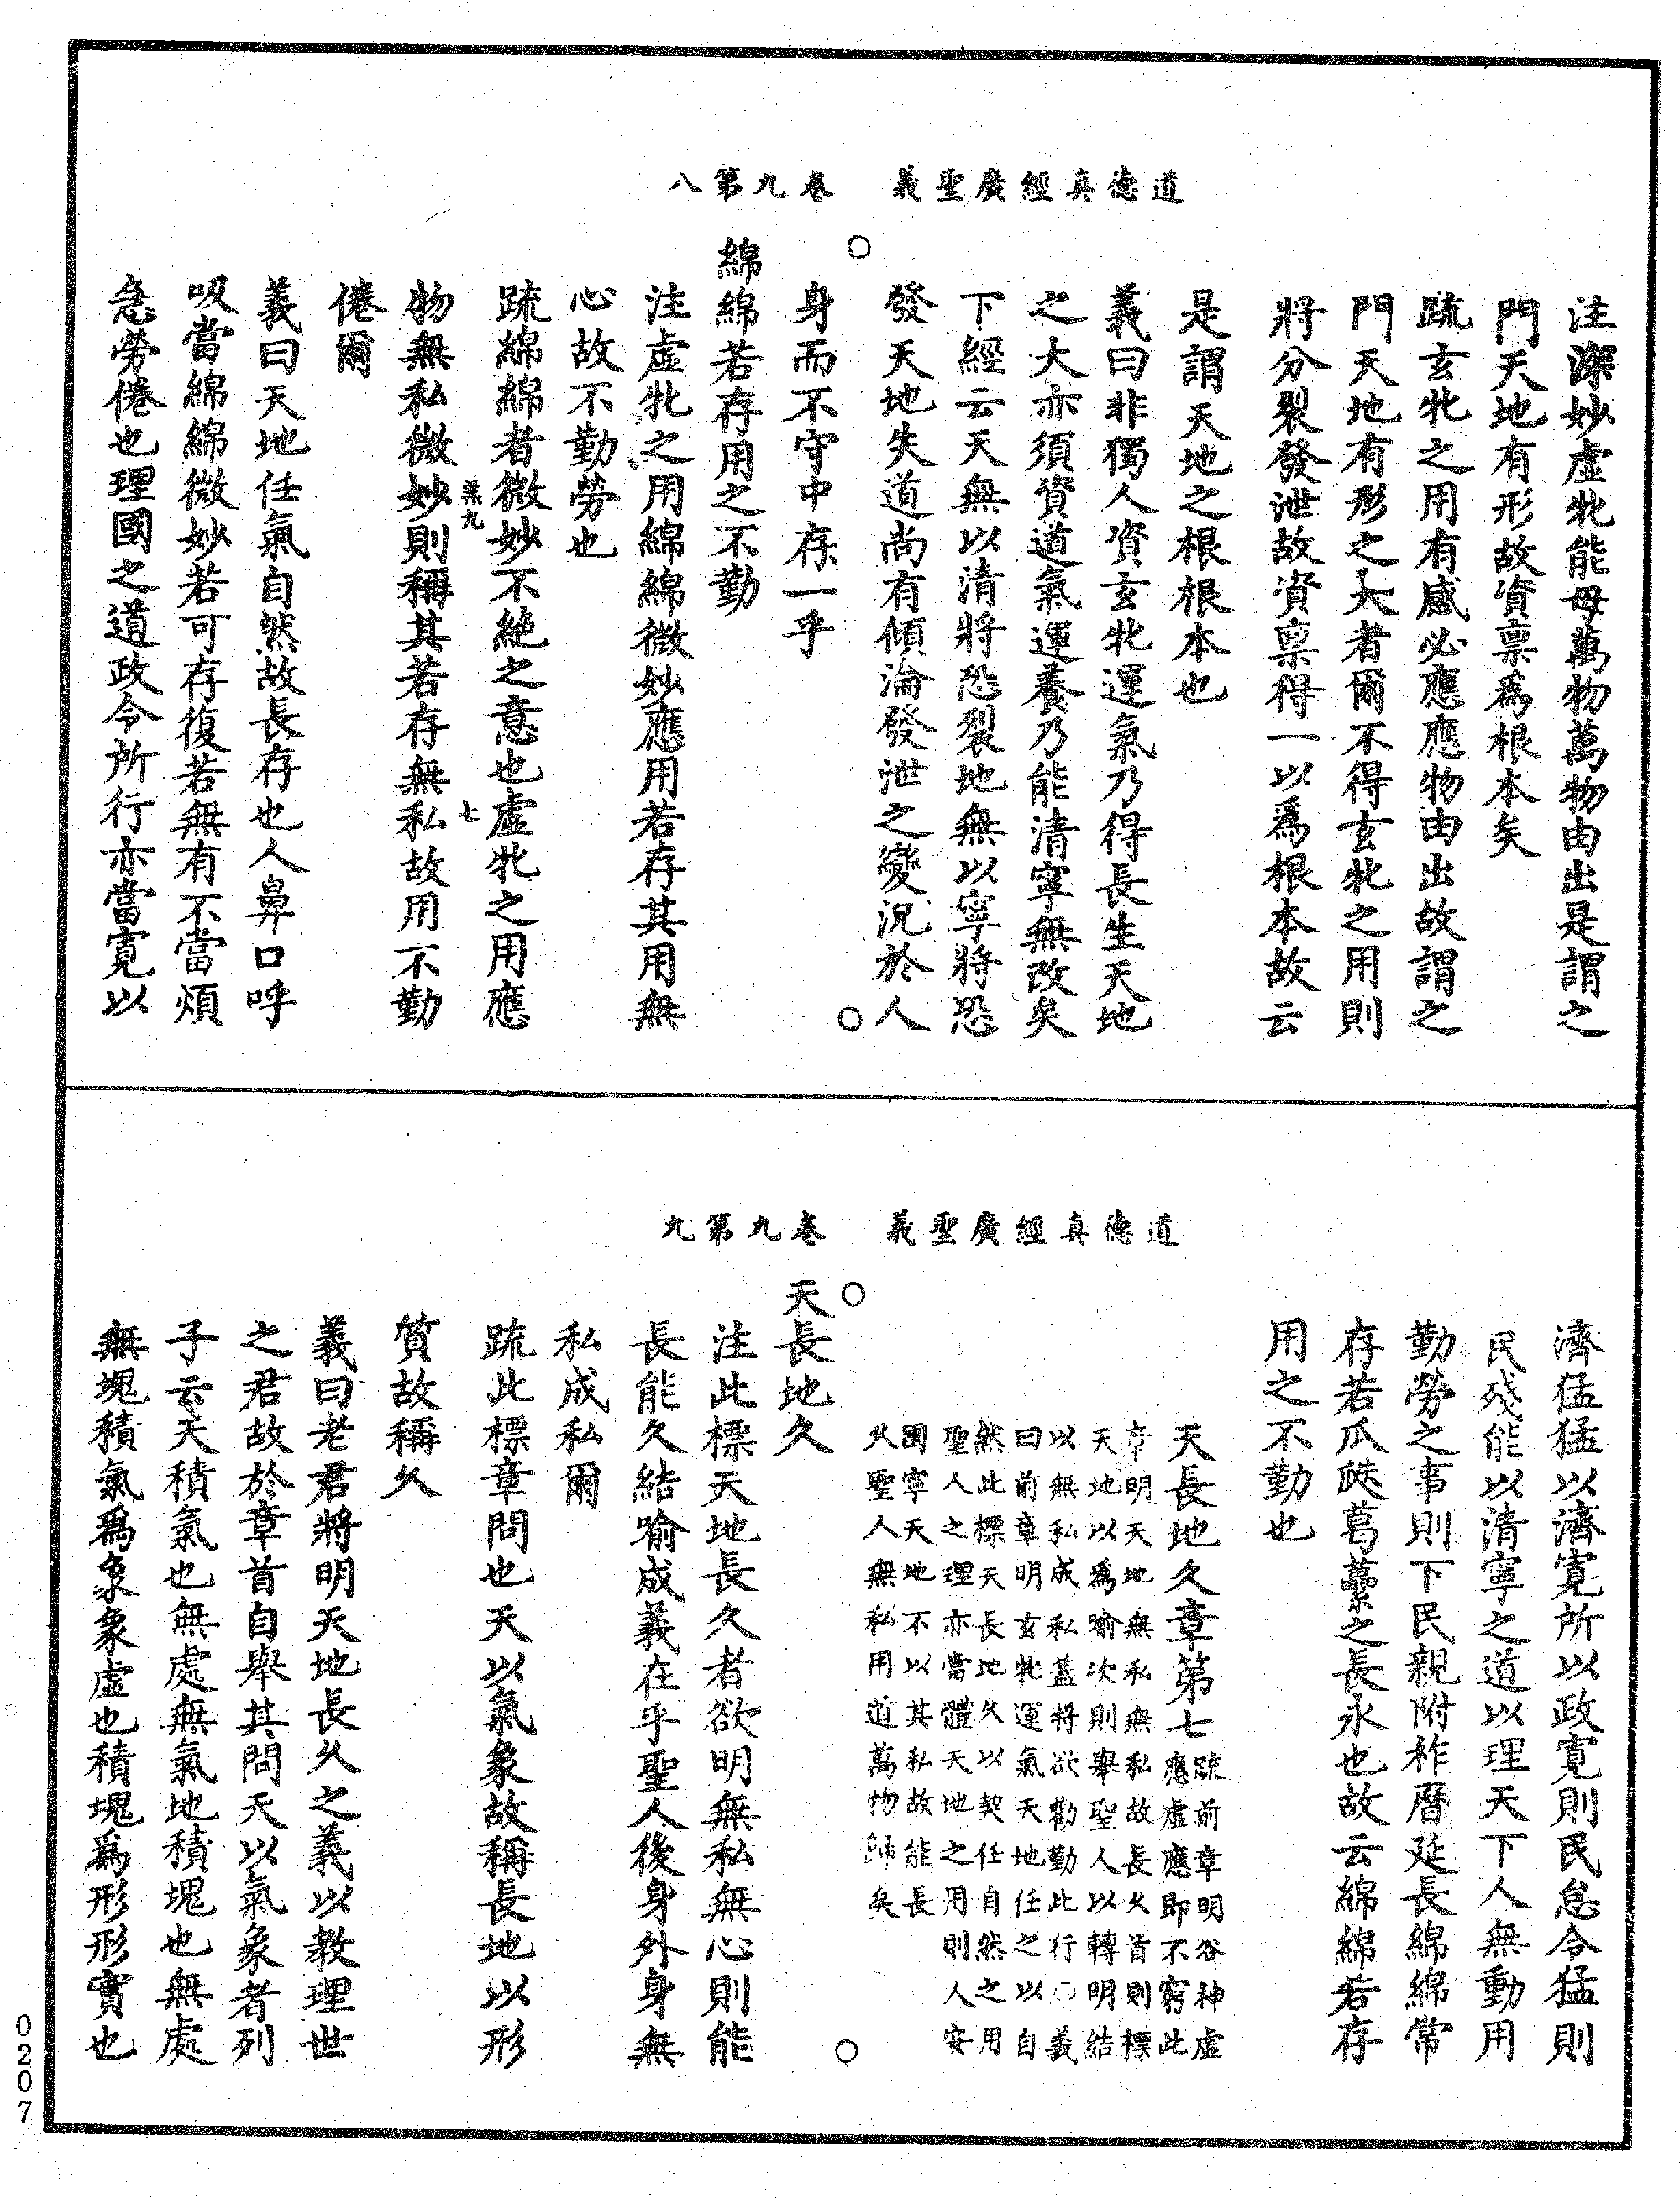 道德真經廣聖義　卷九第八
注深妙虛牝能母萬物萬物由出是謂之
門天地有形故資稟爲根本矣
疏玄牝之用有感必應應物由出故謂之
門天地有形之大者爾不得玄牝之用則
將分裂發泄故資稟得一以爲根本故云
是謂天地之根根本也
義曰非獨人資玄牝運氣乃得長生天地
之大亦須資道氣運養乃能清寧無改矣
下經云天無以清將恐裂地無以寧將恐
發天地失道尚有傾淪發泄之變況於人
身而不守中存一乎
綿綿若存用之不勤
注虛牝之用綿綿微妙應用若存其用無
心故不勤勞也
疏綿綿者微妙不絕之意也虛牝之用應
羔九　七
物無私微妙則稱其若存無私故用不勤
倦爾
義曰天地任氣自然故長存也人鼻口呼
吸當綿綿微妙若可存復若無有不當煩
急勞倦也理國之道政令所行亦當寬以
道德真經廣聖義　卷九第九
濟猛猛以濟寬所以政寬則民怠令猛則
民殘能以清寧之道以理天下人無動用
勤勞之事則下民親附祚曆延長綿綿常
存若瓜瓞葛藟之長永也故云綿綿若存
用之不勤也
天長地久章第七
疏前章明谷神虛
應虛應即不窮此
章明天地無私無私故長久首則標
天地以爲喻次則舉聖人以轉明結
以無私成私蓋將欲勸勤此行○義
曰前章明玄牝運氣天地任之以自
然此標天長地久以契任自然之用
聖人之理亦當體天地之用則人安
國寧天地不以其私故能長
久聖人無私用道萬物歸矣
天長地久
注此標天地長久者欲明無私無心則能
長能久結喻成義在乎聖人後身外身無
私成私爾
疏此標章問也天以氣象故稱長地以形
質故稱久
義曰老君將明天地長久之義以教理世
之君故於章首自舉其問天以氣象者列
子云天積氣也無處無氣地積塊也無處
無塊積氣爲象象虛也積塊爲形形實也
0207